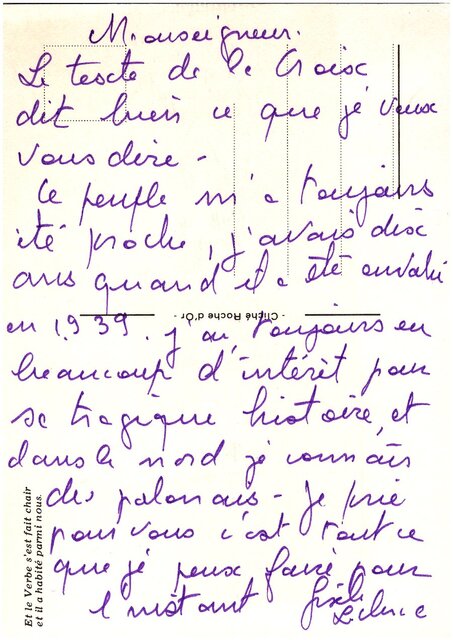 Monseigneur.
Le texte de la Croix
dit bien ce que je veux
vous dire -
Ce peuple m'a toujours
été proche, j'avais dix
ans quand il a été envahi
- Cliché Roche d'Or -
en 1939. j'ai toujours eu
beaucoup d'intérêt pour
sa tragique histoire, et
dans le nord je connais
des polonais - je prie
pour vous c'est tout ce
que je peux faire pour
l'instant Gisèle
Et le Verbe s'est fait chair
et il a habité parmi nous.